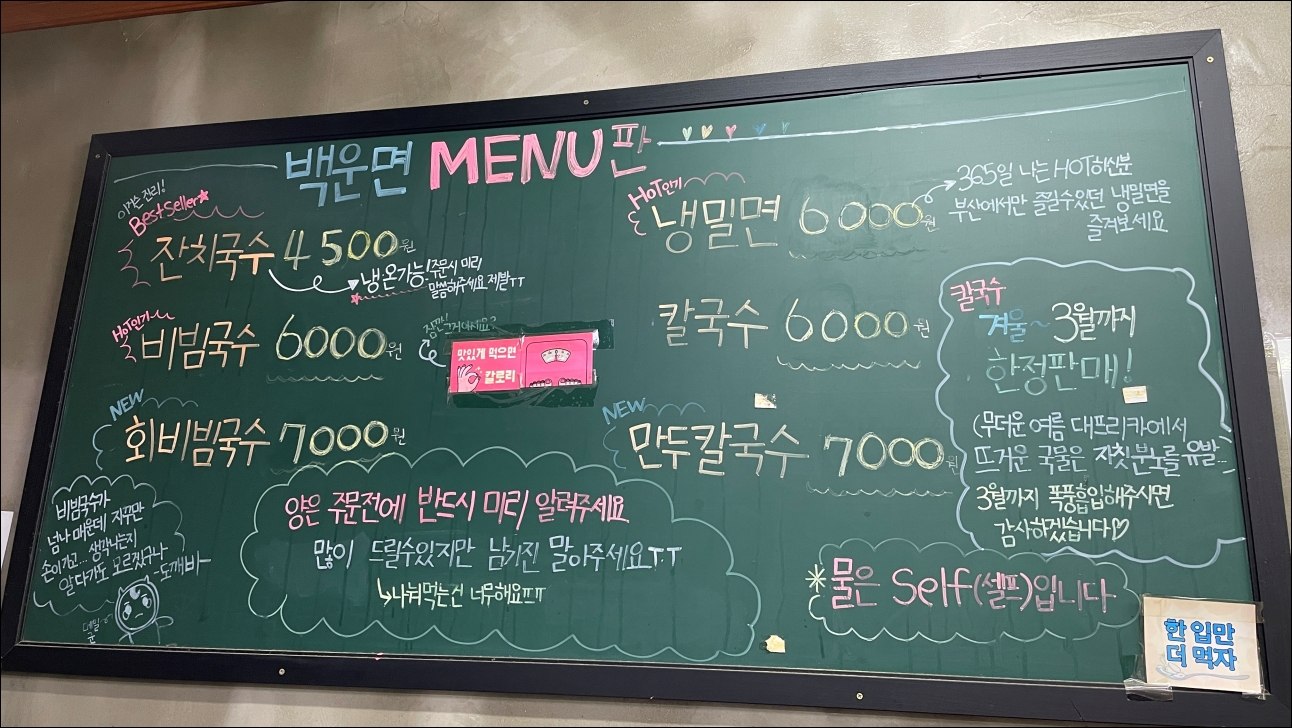 백운면 MENU판
이거는 진리!
Best Seller
잔치국수 4500원
냉온가능! 주문시 미리
말씀해주세요 제발ㅜㅜ
HOT인기
비빔국수 6000원
맛있게 먹으면
0 칼로리
NEW
회비빔국수 7000원
HOT인기
냉밀면 6000원
365일 나는 HOT하신분
부산에서만 즐길수있던 냉밀면을
즐겨보세요
칼국수 6000원
NEW
만두칼국수 7000원
칼국수
겨울~ 3월까지
한정판매!
(무더운 여름 대프리카에서
뜨거운 국물은 자칫 분노를 유발..
3월까지 폭풍흡입해주시면
감사하겠습니다♡
비빔국수가
넘나 매운데 자꾸만
손이가고... 생각나는지
알다가도 모르겠구나
-도깨비-
양은 주문전에 반드시 미리 알려주세요
많이 드릴수있지만 남기진 말아주세요ㅜㅜ
나눠먹는건 너무해요ㅠㅠ
*물은 Self(셀프)입니다
한 입만
더 먹자